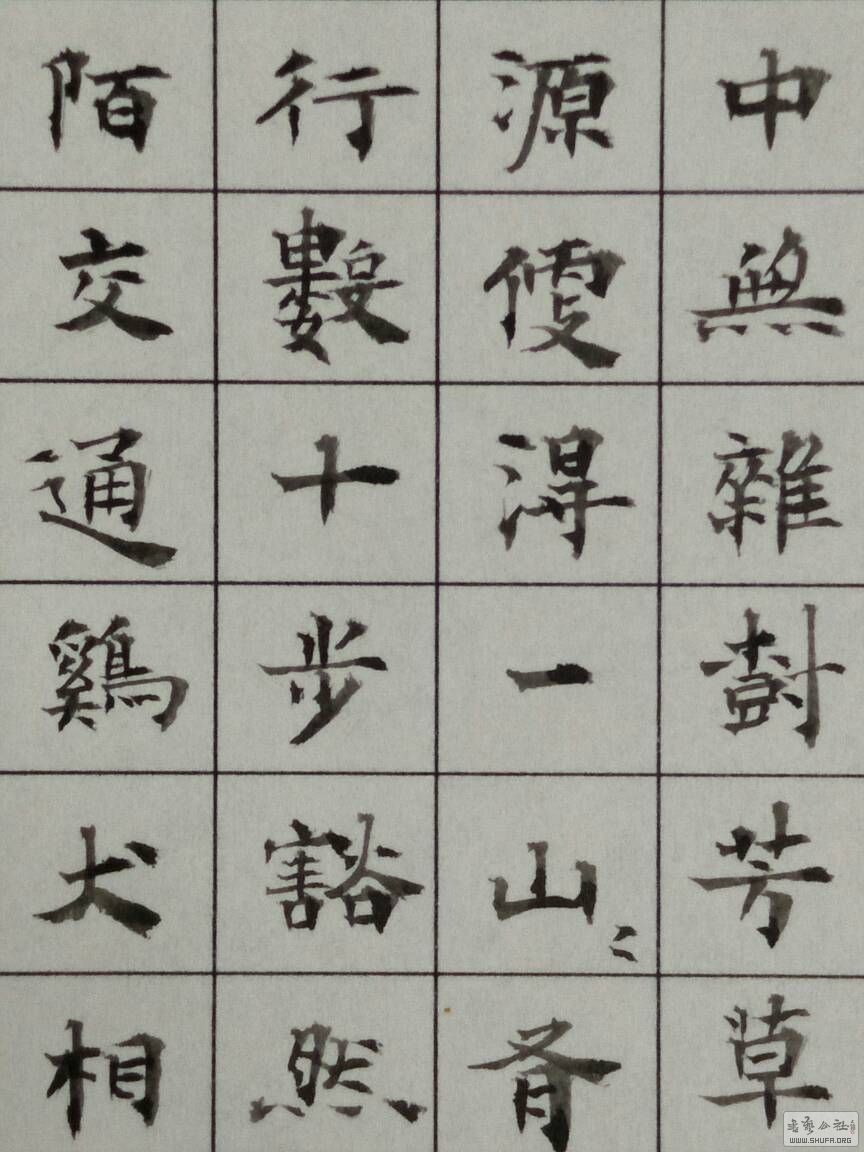 中無雜樹芳草
源便得一山〻有
行數十步豁然
陌交通鷄犬相
书艺公社
WWW.SHUFA.ORG